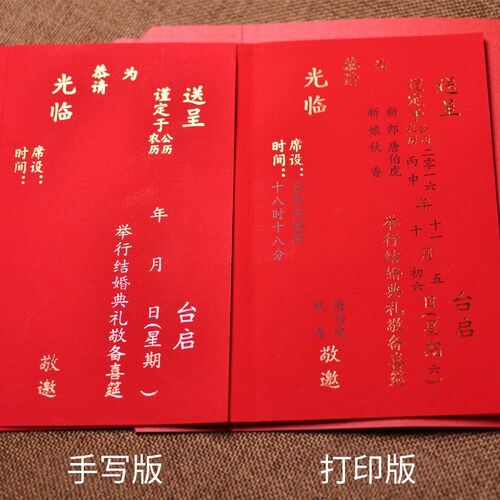 送呈 台启
谨定于 公历 年 月 日(星期 )
农历
为
举行结婚典礼敬备喜筵
恭请
光临
敬邀
席设:
时间:
送呈 台启
谨定于 公历二零一六年十一月五日(星期六)
农历丙申 十 初六
为
新郎唐伯虎
新娘秋香
举行结婚典礼敬备喜筵
恭请
光临
唐伯虎
秋香
敬邀
席设:
时间:十八时十八分
手写版
打印版